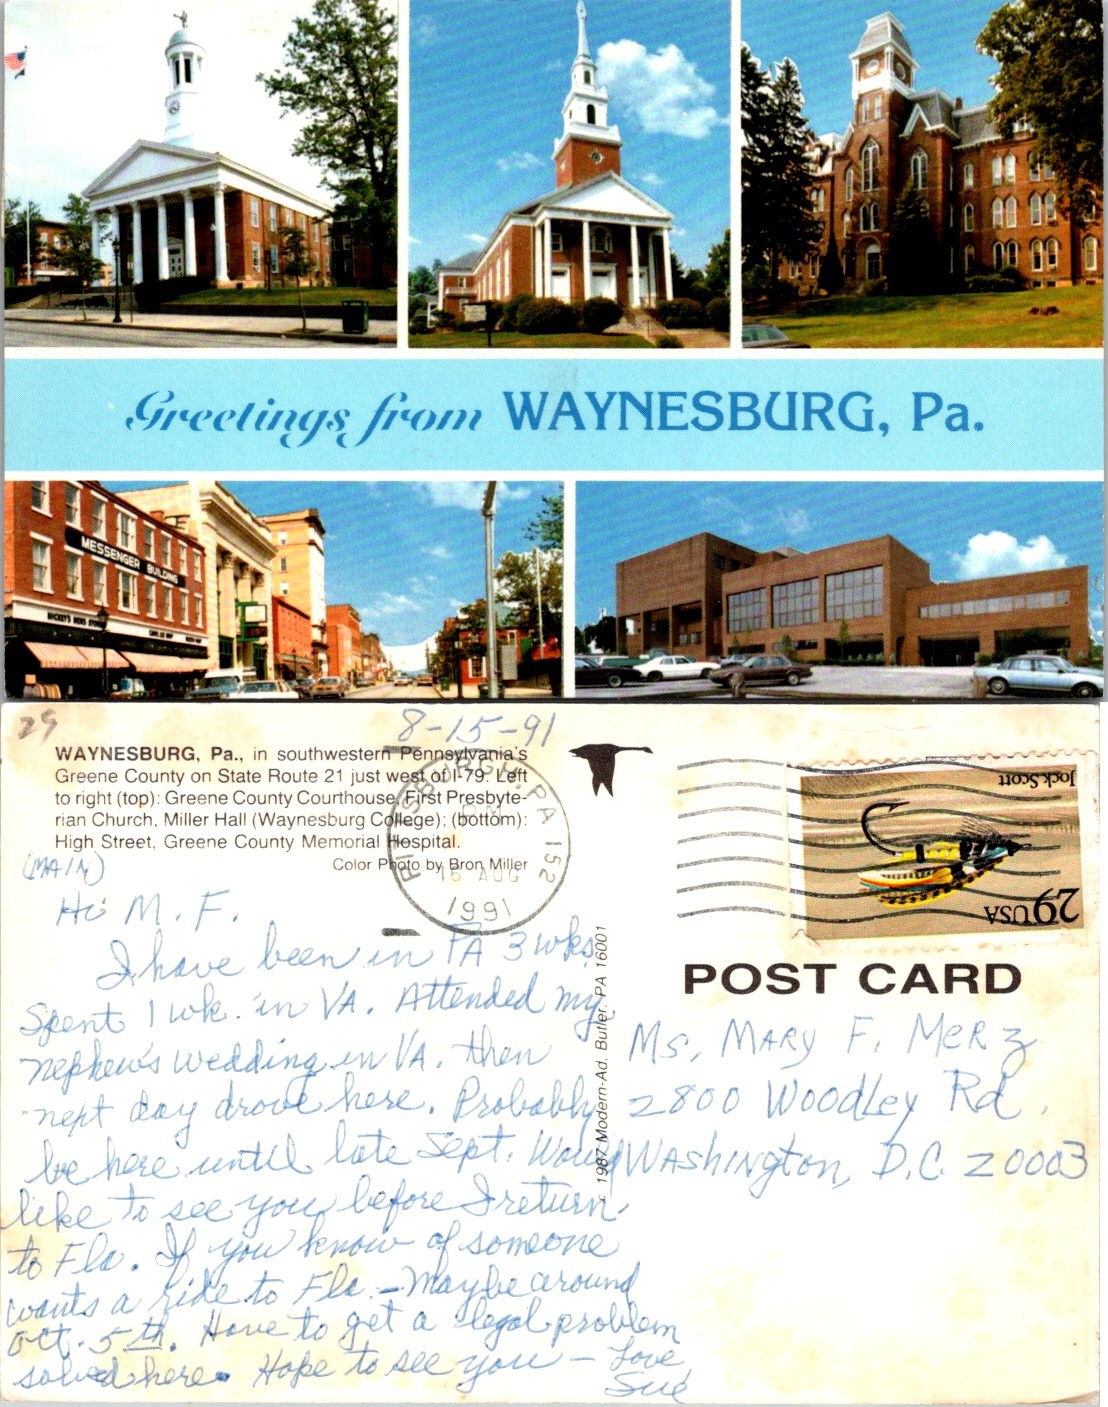 Greetings from WAYNESBURG, Pa.
MESSENGER BUILDING
29
8-15-91
WAYNESBURG, Pa., in southwestern Pennsylvania's
Greene County on State Route 21 just west of I-79. Left
to right (top): Greene County Courthouse, First Presbyte-
rian Church, Miller Hall (Waynesburg College); (bottom):
High Street, Greene County Memorial Hospital.
(MAIN)
Color Photo by Bron Miller
PITTSBURGH, PA 152
PM
15 AUG
1991
Jock Scott
29USA
POST CARD
© 1987 Modern-Ad. Butler, PA 16001
Hi M. F.
I have been in PA 3 wks.
Spent 1 wk. in VA. Attended my
nephew's wedding in VA. then
next day drove here. Probably
be here until late Sept. Would
like to see you before I return
to Fla. If you know of someone
wants a ride to Fla. – Maybe around
Oct. 5th. Have to get a legal problem
solved here. Hope to see you – Love
Sue
Ms. MARY F. MERZ
2800 Woodley Rd.
WAShington, D.C. 20003